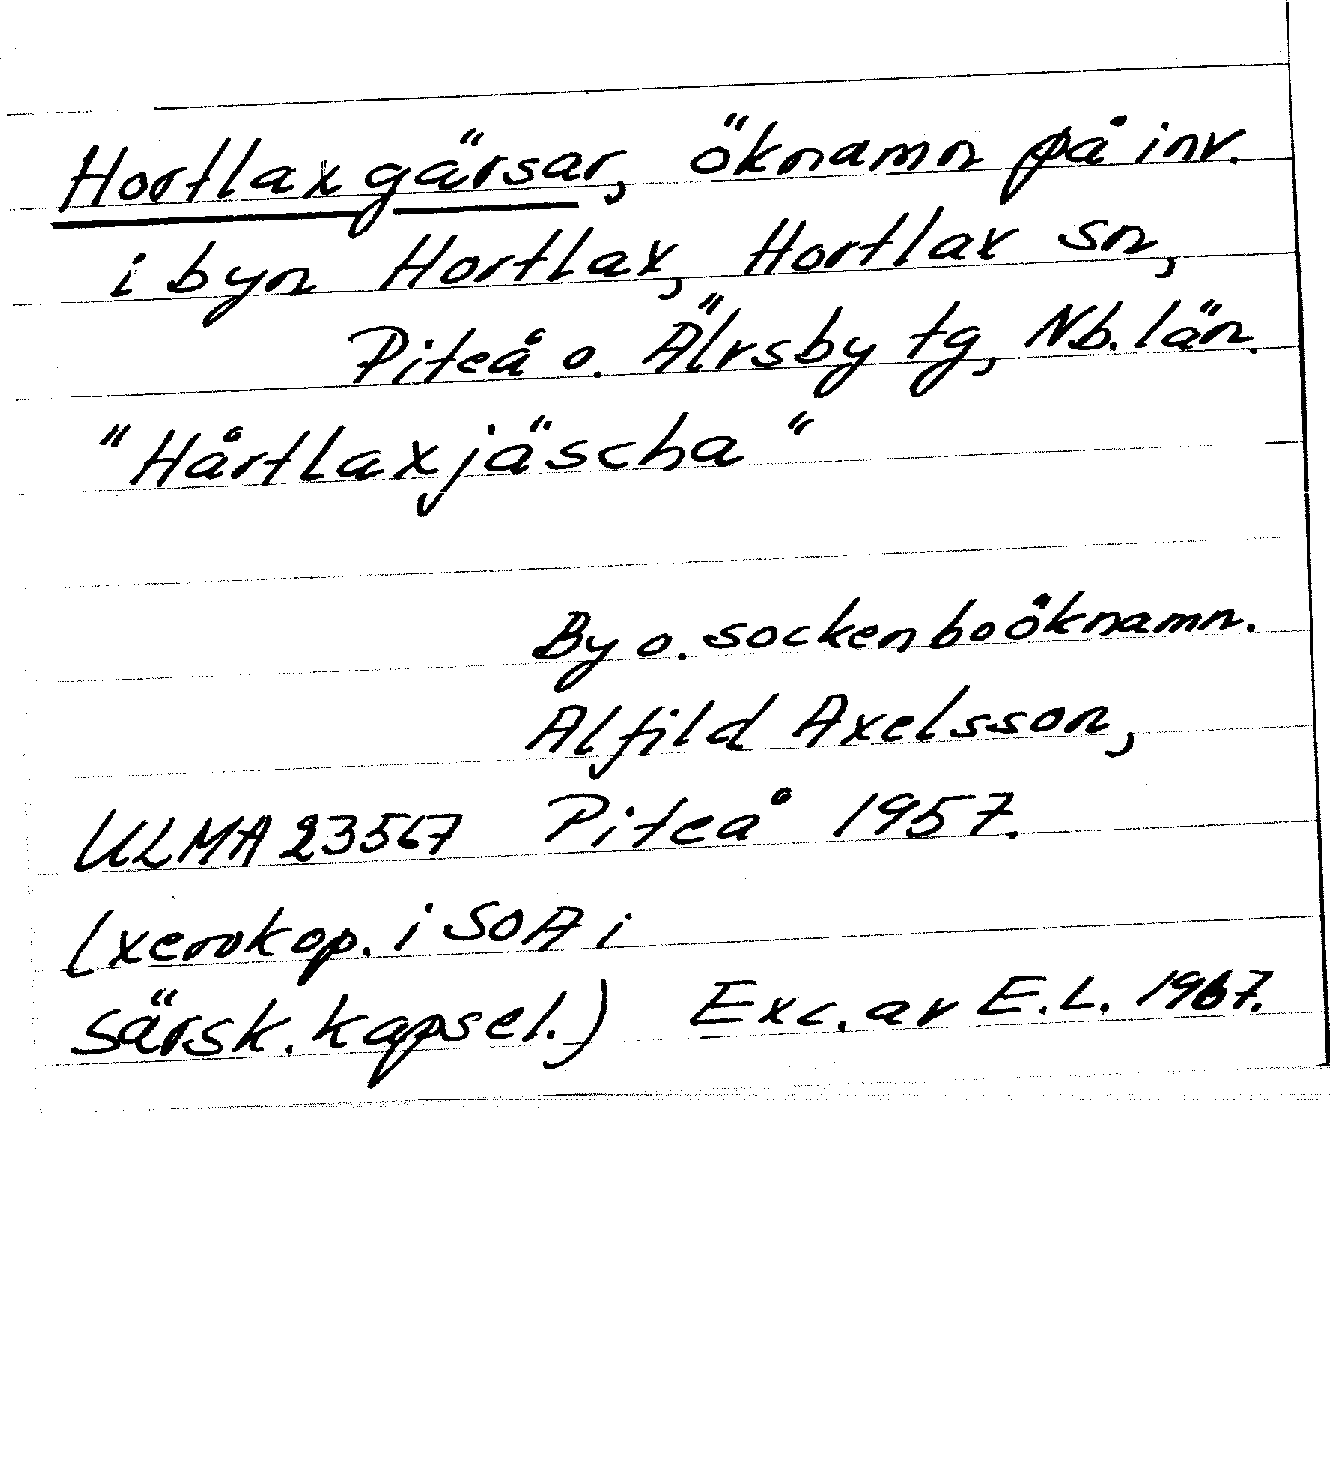 Hortlaxgärsar, öknamn på inv.
i byn Hortlax, Hortlax sn,
Piteå o. Älvsby tg, Nb. län.
"Hårtlaxjäscha"
By o. sockenboöknamn.
Alfild Axelsson,
ULMA 23567 Piteå 1957.
(xerokop. i SOA i
särsk. kapsel.) Exc. av E.L. 1967.